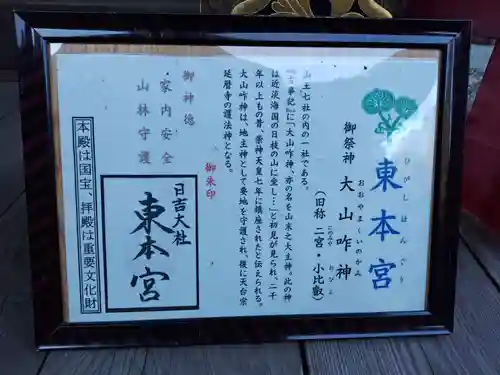 東本宮
ひがしほんぐう
御祭神 大山咋神
おおやまくいのかみ
(旧称 二宮・小比叡)
にのみや おびえ
山王七社の内の一社である。
『古事記』に「大山咋神、亦の名を山末之大主神。此の神
は近淡海国の日枝の山に坐し…」と初見が見られ、二千
年以上もの昔、崇神天皇七年に鎮座されたと伝えられる。
大山咋神は、地主神として要地を守護され、後に天台宗
延暦寺の護法神となる。
御朱印
御神徳
家内安全
山林守護
日吉大社
東本宮
本殿は国宝、拝殿は重要文化財